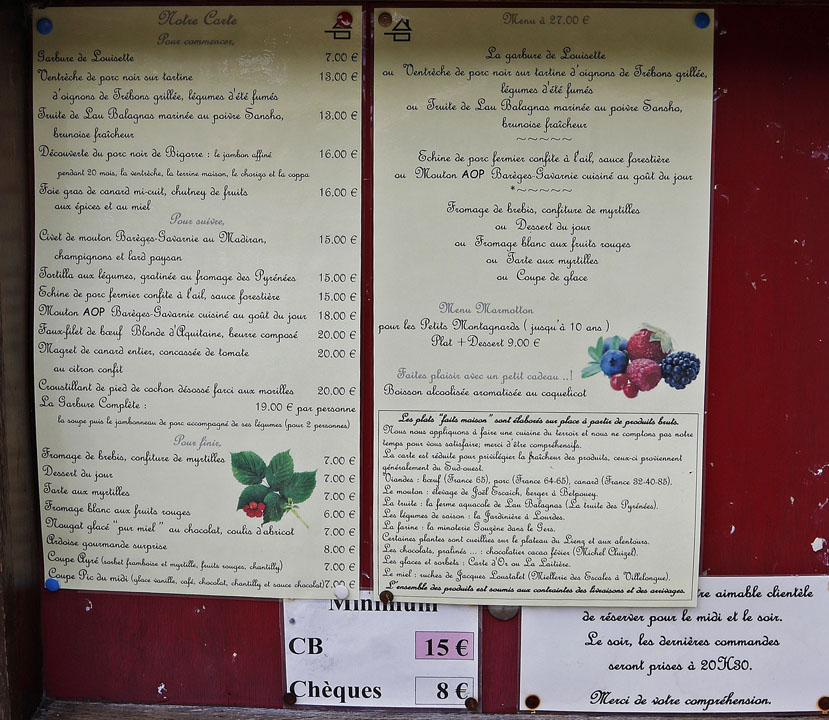 Notre Carte
Pour commencer,
Garbure de Louisette 7.00 €
Ventrèche de porc noir sur tartine 13.00 €
d'oignons de Trébons grillée, légumes d'été fumés
Truite de Lau Balagnas marinée au poivre Sansho, 13.00 €
brunoise fraîcheur
Découverte du porc noir de Bigorre : le jambon affiné 16.00 €
pendant 20 mois, la ventrèche, la terrine maison, le chorizo et la coppa
Foie gras de canard mi-cuit, chutney de fruits 16.00 €
aux épices et au miel
Pour suivre,
Civet de mouton Barèges-Gavarnie au Madiran, 15.00 €
champignons et lard paysan
Tortilla aux légumes, gratinée au fromage des Pyrénées 15.00 €
Echine de porc fermier confite à l'ail, sauce forestière 15.00 €
Mouton AOP Barèges-Gavarnie cuisiné au goût du jour 18.00 €
Faux-filet de bœuf Blonde d'Aquitaine, beurre composé 20.00 €
Magret de canard entier, concassée de tomate 20.00 €
au citron confit
Croustillant de pied de cochon désossé farci aux morilles 20.00 €
La Garbure Complète : 19.00 € par personne
la soupe puis le jambonneau de porc accompagné de ses légumes (pour 2 personnes)
Pour finir,
Fromage de brebis, confiture de myrtilles 7.00 €
Dessert du jour 7.00 €
Tarte aux myrtilles 7.00 €
Fromage blanc aux fruits rouges 6.00 €
Nougat glacé "pur miel" au chocolat, coulis d'abricot 7.00 €
Ardoise gourmande surprise 8.00 €
Coupe Ayré (sorbet framboise et myrtille, fruits rouges, chantilly) 7.00 €
Coupe Pic du midi (glace vanille, café, chocolat, chantilly et sauce chocolat) 7.00 €
Menu à 27.00 €
La garbure de Louisette
ou Ventrèche de porc noir sur tartine d'oignons de Trébons grillée,
légumes d'été fumés
ou Truite de Lau Balagnas marinée au poivre Sansho,
brunoise fraîcheur
~~~~~
Echine de porc fermier confite à l'ail, sauce forestière
ou Mouton AOP Barèges-Gavarnie cuisiné au goût du jour
*~~~~~
Fromage de brebis, confiture de myrtilles
ou Dessert du jour
ou Fromage blanc aux fruits rouges
ou Tarte aux myrtilles
ou Coupe de glace
Menu Marmotton
pour les Petits Montagnards ( jusqu'à 10 ans )
Plat +Dessert 9.00 €
Faites plaisir avec un petit cadeau ..!
Boisson alcoolisée aromatisée au coquelicot
Les plats "faits maison" sont élaborés sur place à partir de produits bruts.
Nous nous appliquons à faire une cuisine du terroir et nous ne comptons pas notre
temps pour vous satisfaire; merci d'être compréhensifs.
La carte est réduite pour privilégier la fraîcheur des produits, ceux-ci proviennent
généralement du Sud-ouest.
Viandes : bœuf (France 65), porc (France 64-65), canard (France 32-40-65).
Le mouton : élevage de Joël Escaich, berger à Betpouey.
La truite : la ferme aquacole de Lau Balagnas (La truite des Pyrénées).
Les légumes de saison : la Jardinière à Lourdes.
La farine : la minoterie Gouzène dans le Gers.
Certaines plantes sont cueillies sur le plateau du Lienz et aux alentours.
Les chocolats, pralinés ... : chocolatier cacao féviér (Michel Cluizel).
Les glaces et sorbets : Carte d'Or ou La Laitière.
Le miel : ruches de Jacques Loustalet (Miellerie des Escales à Villelongue).
L'ensemble des produits est soumis aux contraintes des livraisons et des arrivages.
Minimum
CB 15 €
Chèques 8 €
aimable clientèle
de réserver pour le midi et le soir.
Le soir, les dernières commandes
seront prises à 20H30.
Merci de votre compréhension.